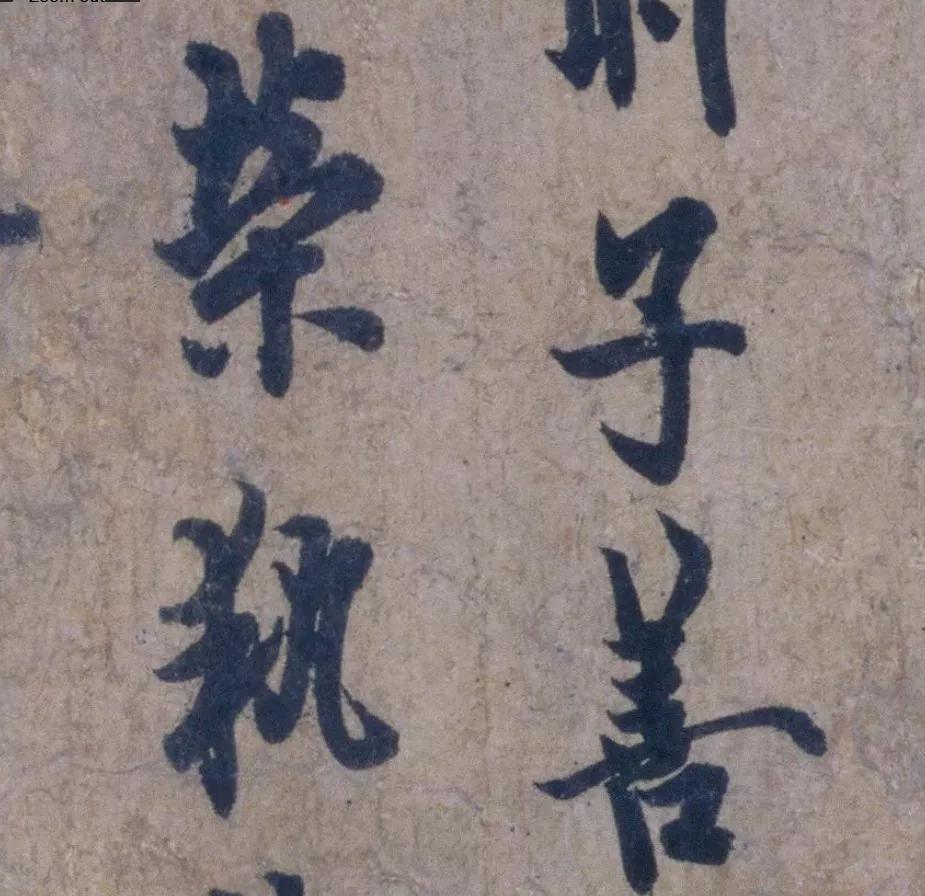 子善
榮執